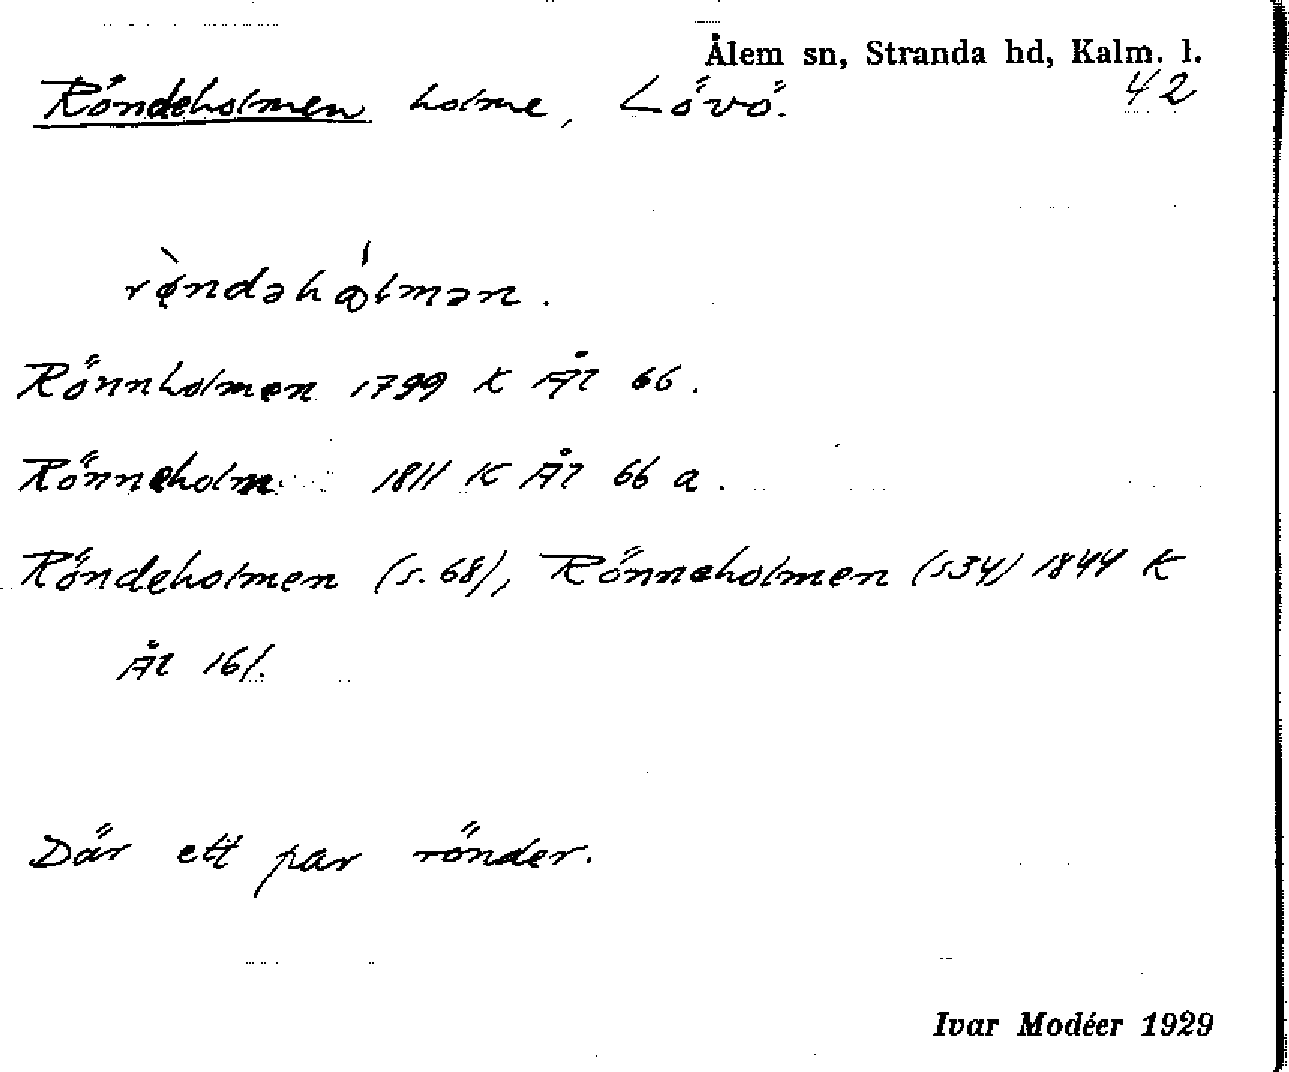 Ålem sn, Stranda hd, Kalm. l.
Röndeholmen holme, Lövö. 42
rø̀ndəhål̍mən.
Rönnholmen 1799 K Ål 66.
Rönneholm 1811 K Ål 66 a.
Röndeholmen (s. 68), Rönneholmen (s 34) 1844 K
Ål 161.
Där ett par rönder.
Ivar Modéer 1929